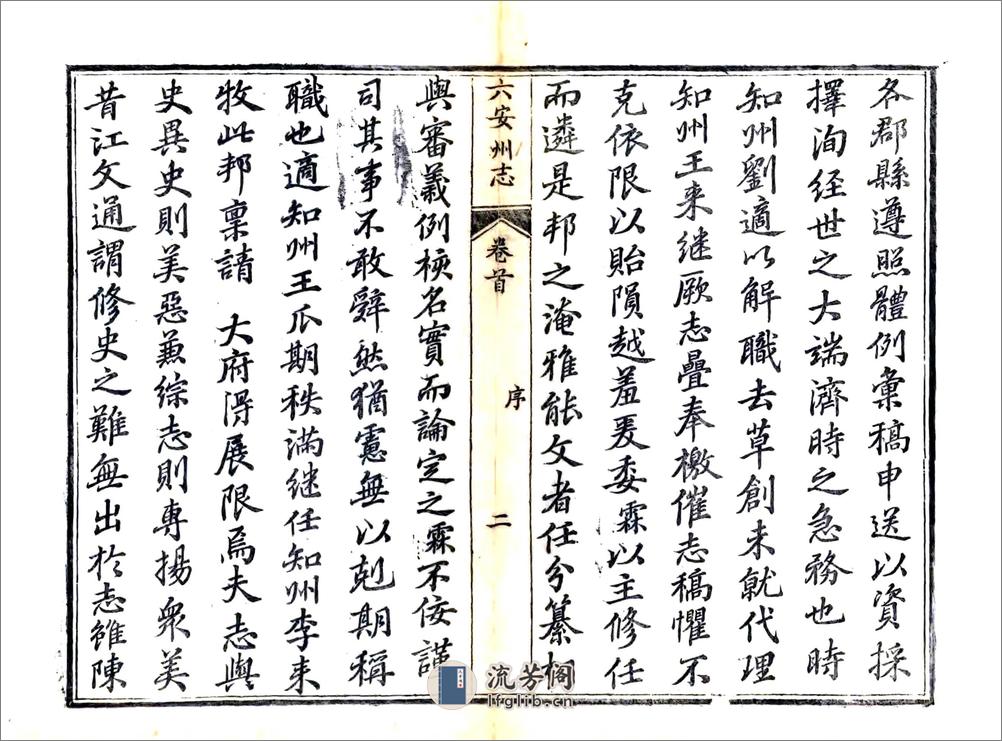 各郡縣遵照體例彙稿申送以資採
擇洵經世之大端濟時之急務也時
知州劉適以解職去草創未就代理
知州王来继厥志疊奉檄催志稿懼不
克依限以貽隕越羞爰委霖以主修任
而遴是邦之淹雅能文者任分纂相
六安州志
卷首
序
二
與審義例核名實而論定之霖不佞謹
司其事不敢辤然猶慮無以剋期稱
職也適知州王瓜期秩滿继任知州李来
牧此邦稟請 大府淂展限焉夫志與
史異史則美惡兼綜志則專揚衆美
昔江文通謂修史之難無出於志雖陳
流芳閣
lfglib.cn